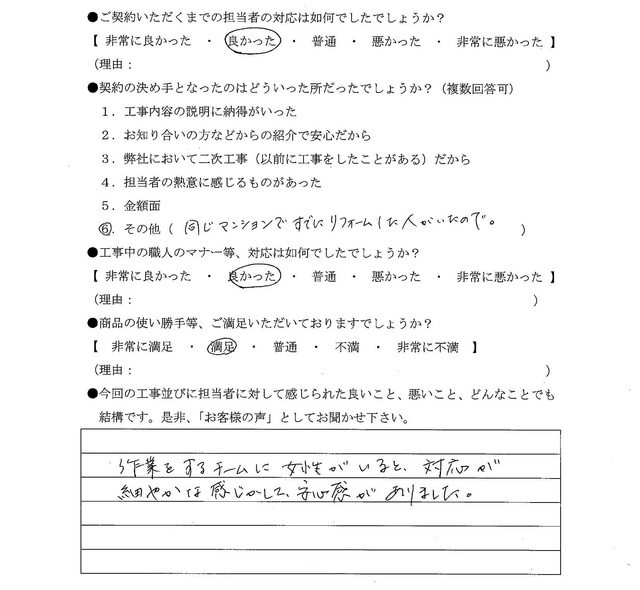 ●ご契約いただくまでの担当者の対応は如何でしたでしょうか？
【 非常に良かった ・ 良かった ・ 普通 ・ 悪かった ・ 非常に悪かった 】
（理由： ）
●契約の決め手となったのはどういった所だったでしょうか？（複数回答可）
１．工事内容の説明に納得がいった
２．お知り合いの方などからの紹介で安心だから
３．弊社において二次工事（以前に工事をしたことがある）だから
４．担当者の熱意に感じるものがあった
５．金額面
⑥．その他（ 同じマンションですでにリフォームした人がいたので。 ）
●工事中の職人のマナー等、対応は如何でしたでしょうか？
【 非常に良かった ・ 良かった ・ 普通 ・ 悪かった ・ 非常に悪かった 】
（理由： ）
●商品の使い勝手等、ご満足いただいておりますでしょうか？
【 非常に満足 ・ 満足 ・ 普通 ・ 不満 ・ 非常に不満 】
（理由： ）
●今回の工事並びに担当者に対して感じられた良いこと、悪いこと、どんなことでも
結構です。是非、「お客様の声」としてお聞かせ下さい。
作業をするチームに女性がいると、対応が
細やかな感じがして、安心感がありました。